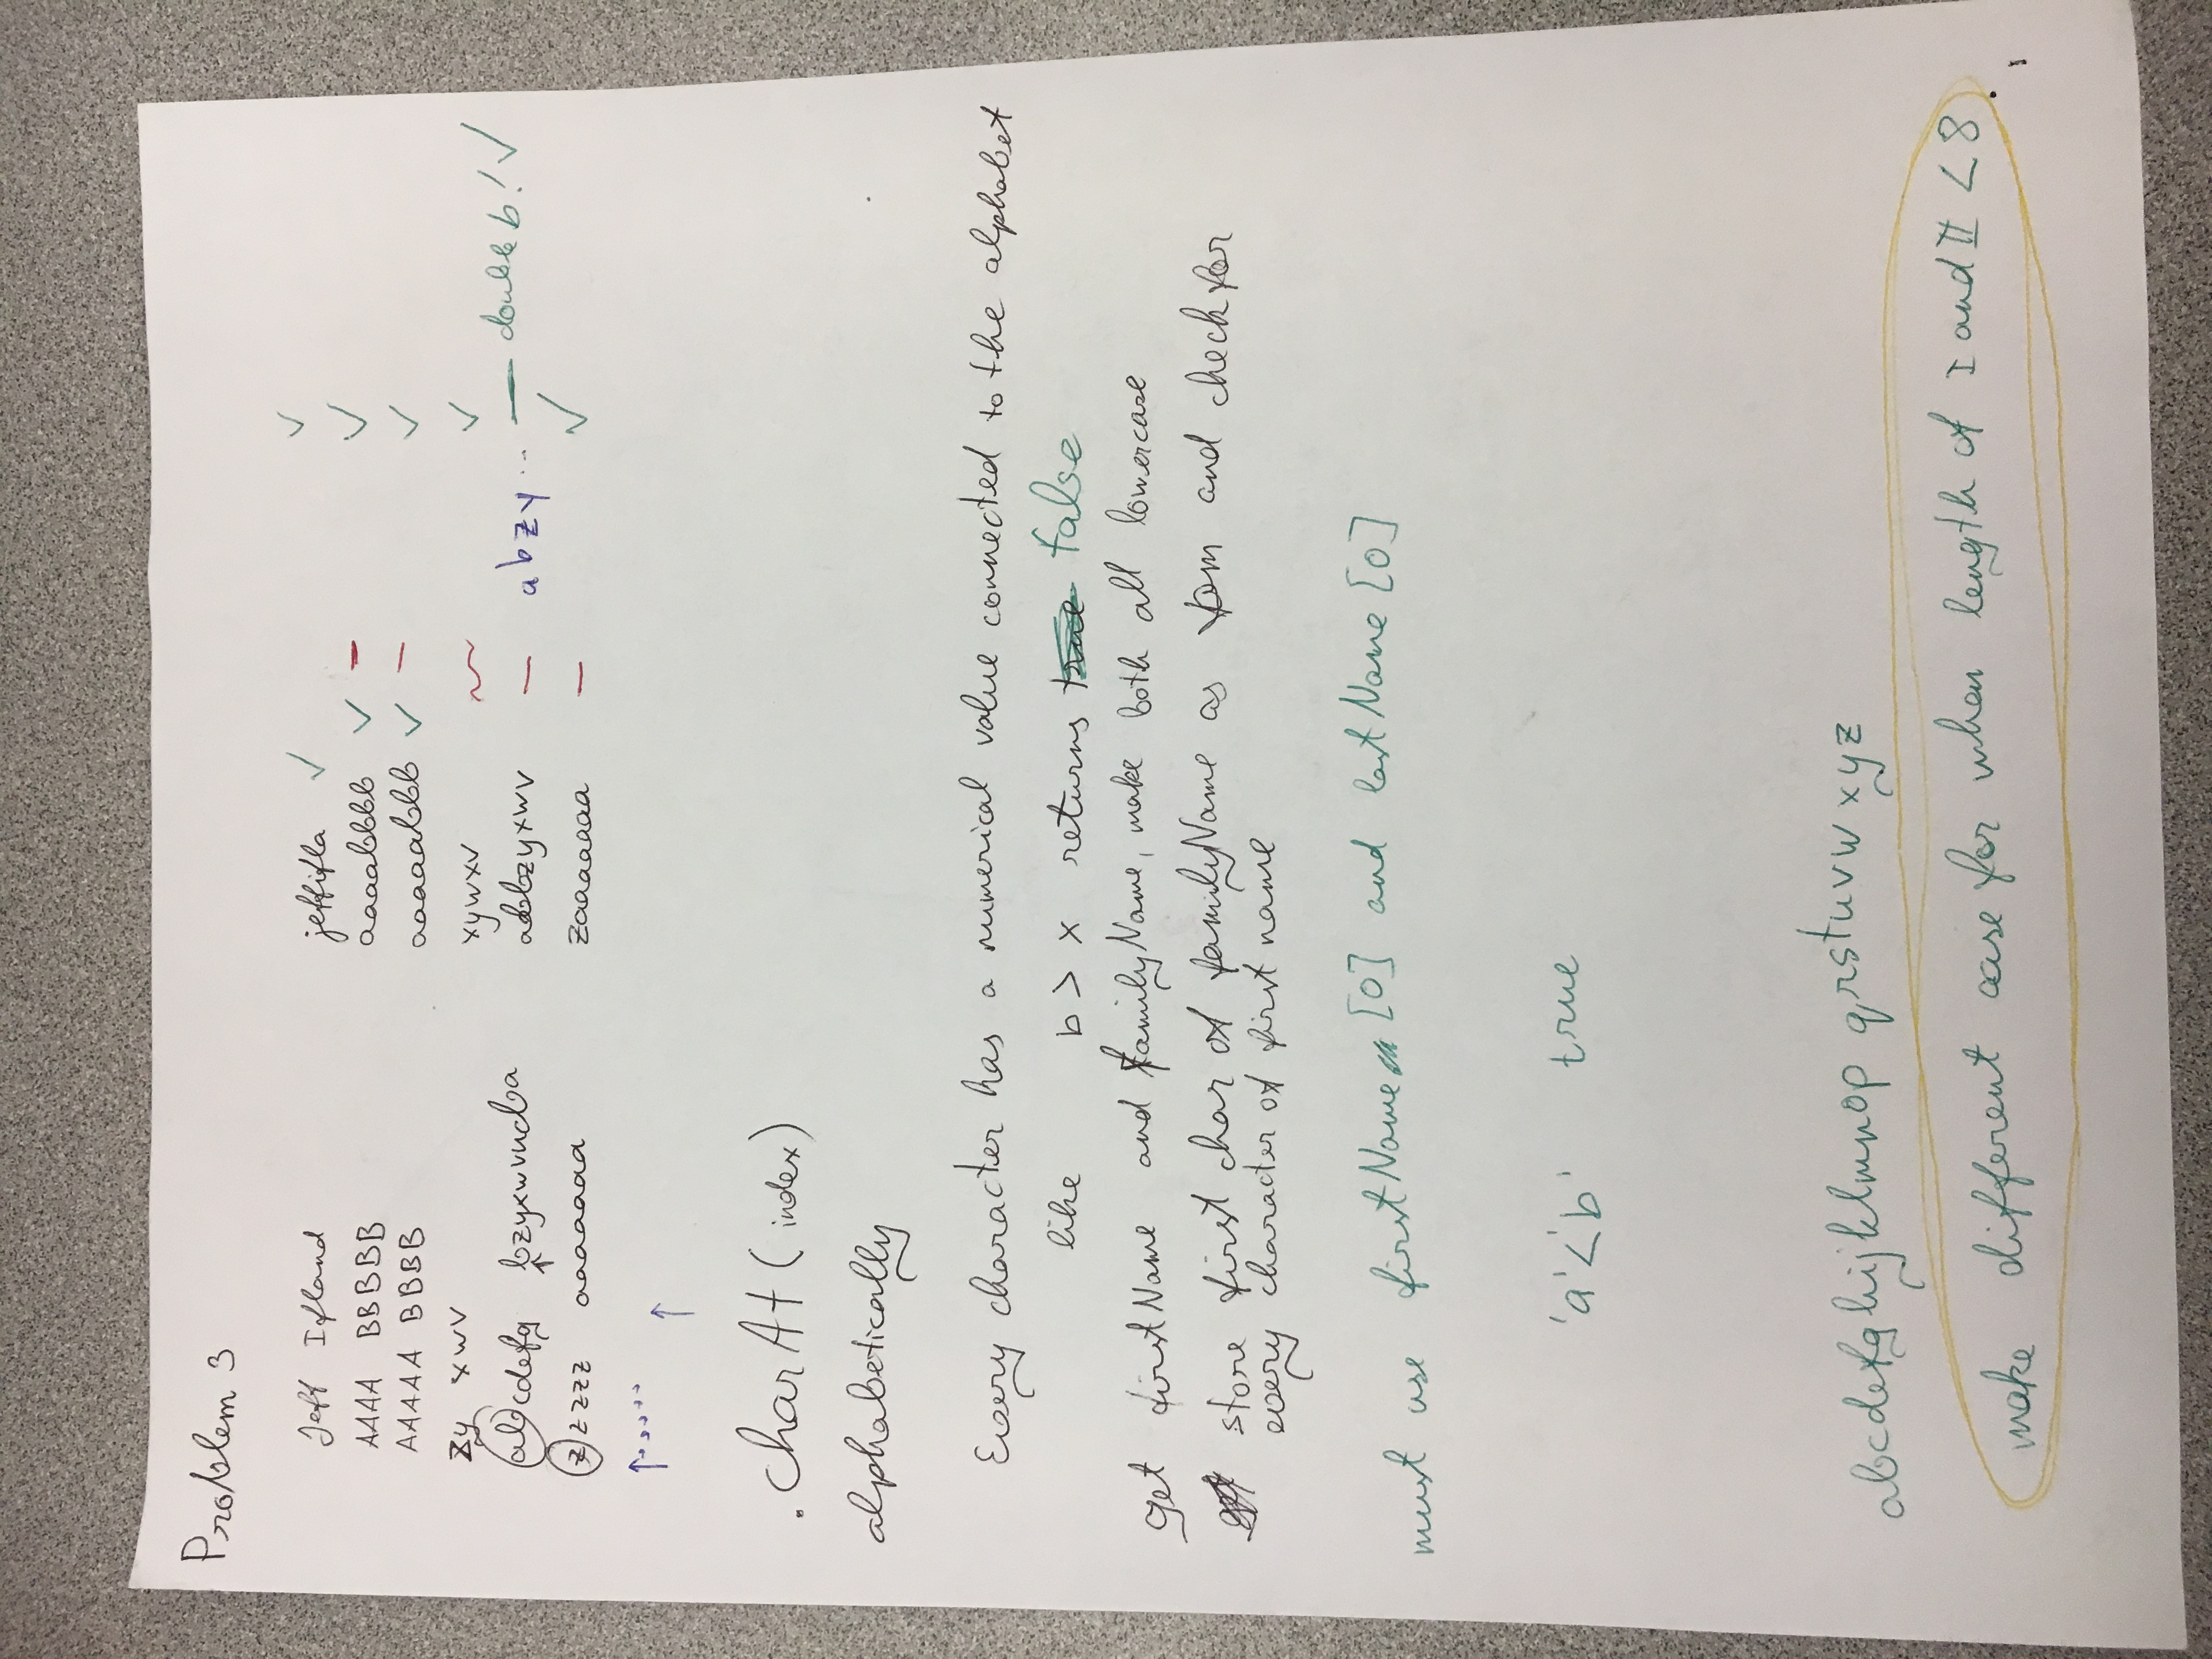 Problem 3
Jeff Ifland jeffifla ✓ ✓
AAAA BBBBB aaaabbbb ✓ – ✓
AAAAA BBBB aaaaabbb ✓ – ✓
zy xwv xywxv ~ ✓
abcdefg bzyxwvucba abbzyxwv – abzy... — double b! ✓
zzzzz aaaaaaa zaaaaaaa – ✓
.charAt(index)
alphabetically
Every character has a numerical value connected to the alphabet
like b > x returns true false
get firstName and familyName, make both all lowercase
store first char of familyName as and check for
every character of first name
must use firstName [0] and lastName [0]
'a'<'b' true
abcdefghijklmnop qrstuvwxyz
make different case for when length of I and II < 8